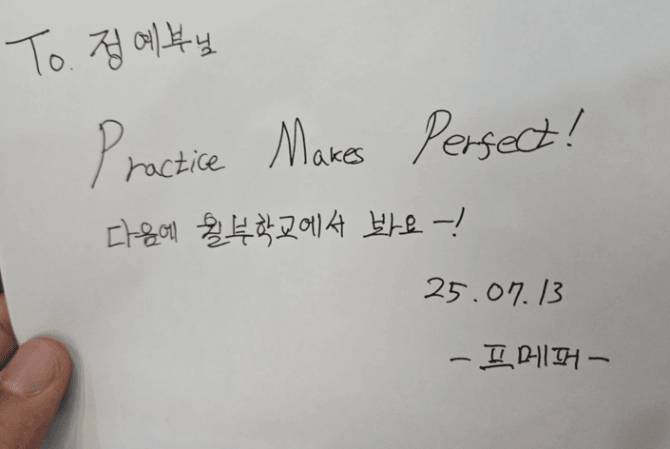 To. 정예부님
Practice Makes Perfect!
다음에 월부학교에서 봐요-!
25.07.13
- 프메퍼 -